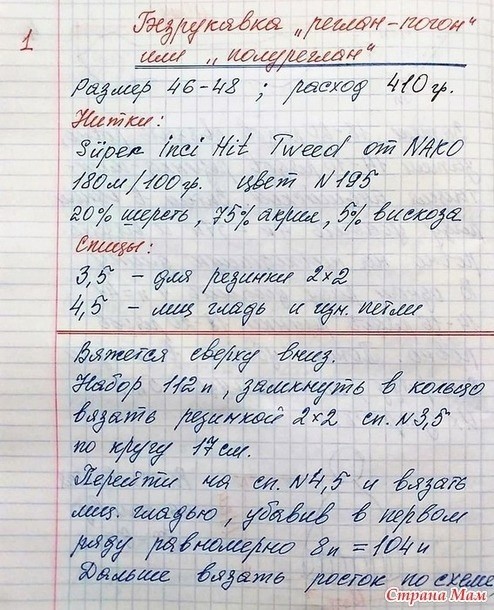 1
Безрукавка „реглан-погон"
или „полуреглан"
Размер 46-48 ; расход 410 гр.
Нитки:
Süper inci Hit Tweed от NAKO
180м/100гр. цвет N195
20% шерсть, 75% акрил, 5% вискоза
Спицы:
3,5 – для резинки 2×2
4,5 – лиц гладь и изн. петли
Вяжется сверху вниз.
Набор 112 п, замкнуть в кольцо
вязать резинкой 2×2 сп. N3,5
по кругу 17 см.
Перейти на сп. N4,5 и вязать
лиц. гладью, убавив в первом
ряду равномерно 8п = 104п
Дальше вязать росток по схеме
Страна Мам